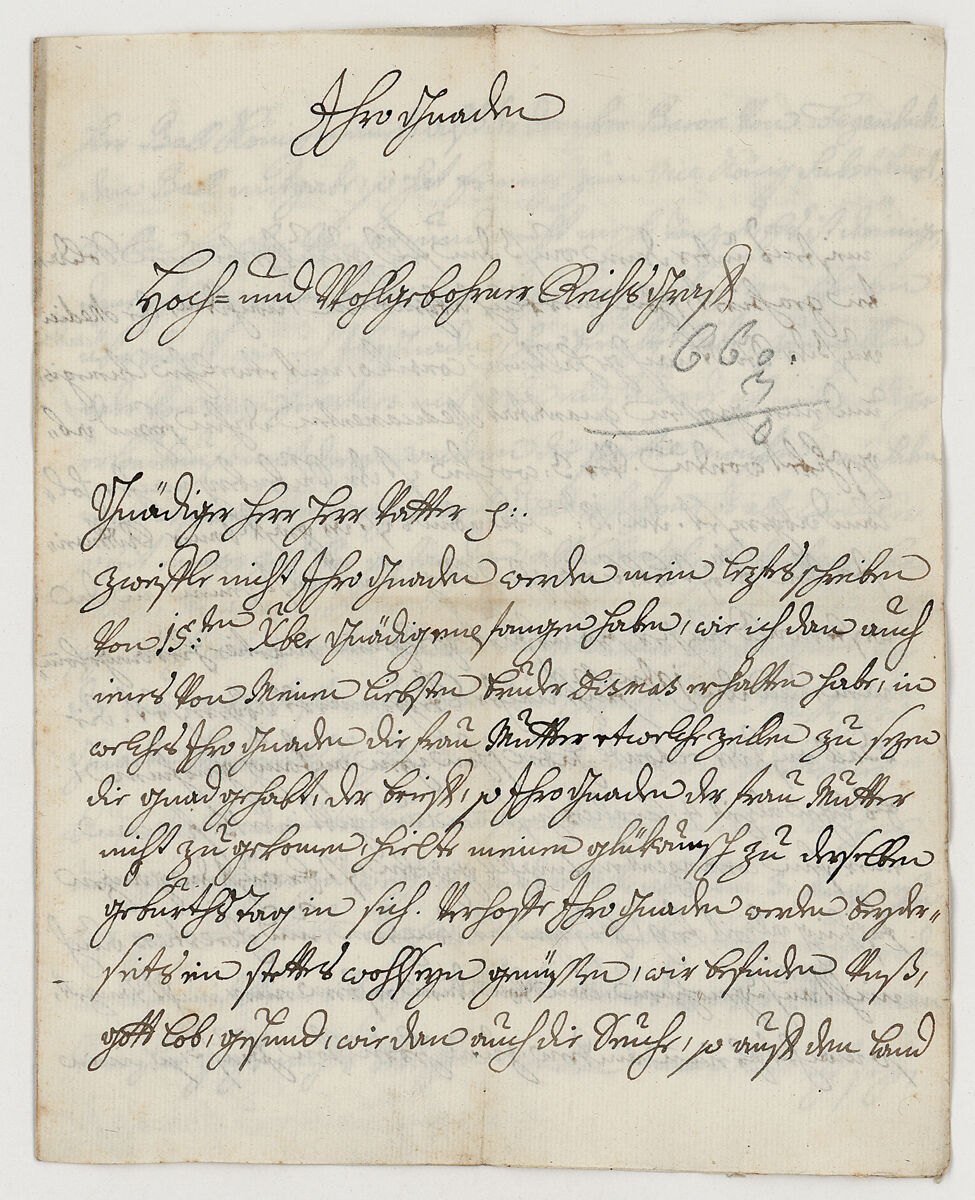 Ihro Gnaden
Hoch= und Wohlgebohrner Reichs Graff
660.
3
0
Gnädiger Herr Herr Vatter p:.
zweiffle nicht Ihro Gnaden werden mein leztes schreiben
Von 15:ten Xber Gnädig empfangen haben, wie ich dan auch
ienes Von Meinen liebsten bruder Dismas erhalten habe, in
welches Ihro Gnaden die frau Mutter etwelche zeillen zu sezen
die gnad gehabt, der brieff, so Ihro Gnaden der frau Mutter
nicht zu gekomen, hielte meinen glükwunsch zu derselben
geburths tag in sich. Verhoffe Ihro Gnaden werden beyder=
seits im stettes wohlseyn genüssen, wir befinden Unß,
gott lob, gesund, wie dan auch die Seuche, so auff den land